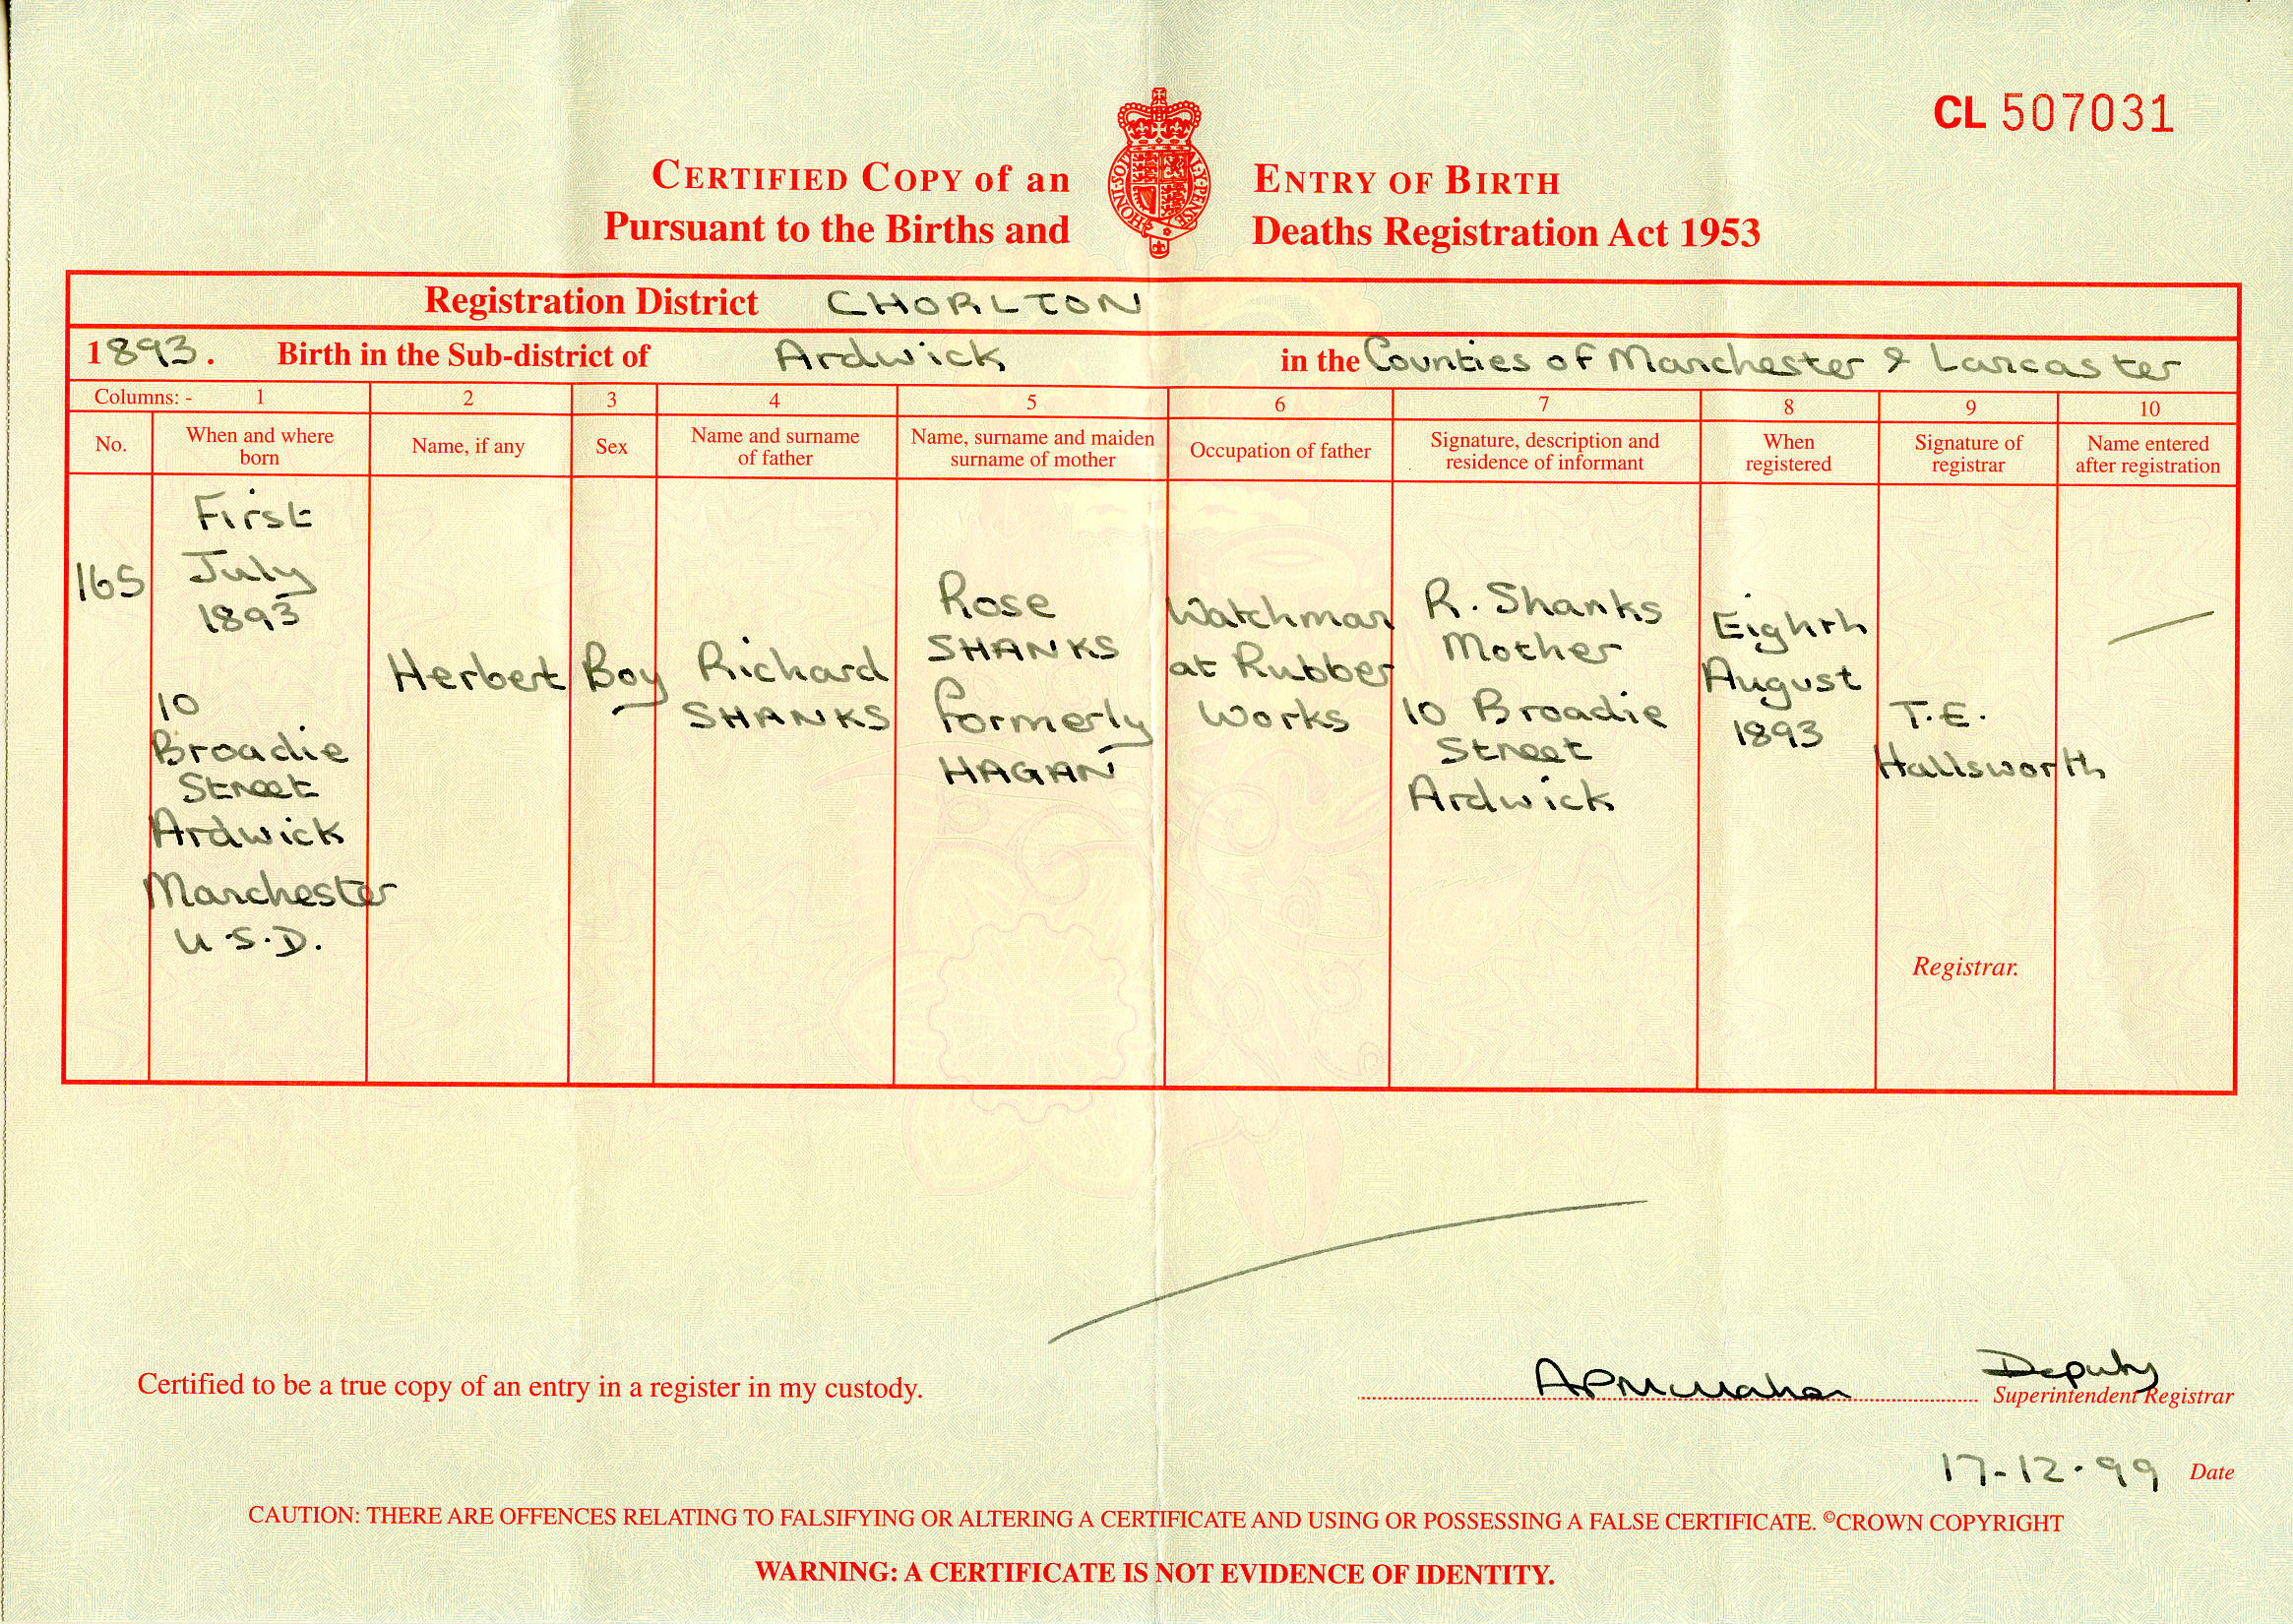 CL 507031
CERTIFIED COPY of an ENTRY OF BIRTH
Pursuant to the Births and Deaths Registration Act 1953
HONI·SOIT AL·Y·PENSE
Registration District CHORLTON
1893. Birth in the Sub-district of Ardwick in the Counties of Manchester & Lancaster
Columns: - 1 2 3 4 5 6 7 8 9 10
No.
When and where
born
Name, if any
Sex
Name and surname
of father
Name, surname and maiden
surname of mother
Occupation of father
Signature, description and
residence of informant
When
registered
Signature of
registrar
Name entered
after registration
165
First
July
1893
10
Broadie
Street
Ardwick
Manchester
U.S.D.
Herbert
Boy
Richard
SHANKS
Rose
SHANKS
formerly
HAGAN
Watchman
at Rubber
Works
R. Shanks
Mother
10 Broadie
Street
Ardwick
Eighth
August
1893
T.E.
Hallsworth
Registrar.
Certified to be a true copy of an entry in a register in my custody.
Deputy
Superintendent Registrar
17-12-99 Date
CAUTION: THERE ARE OFFENCES RELATING TO FALSIFYING OR ALTERING A CERTIFICATE AND USING OR POSSESSING A FALSE CERTIFICATE. ©CROWN COPYRIGHT
WARNING: A CERTIFICATE IS NOT EVIDENCE OF IDENTITY.